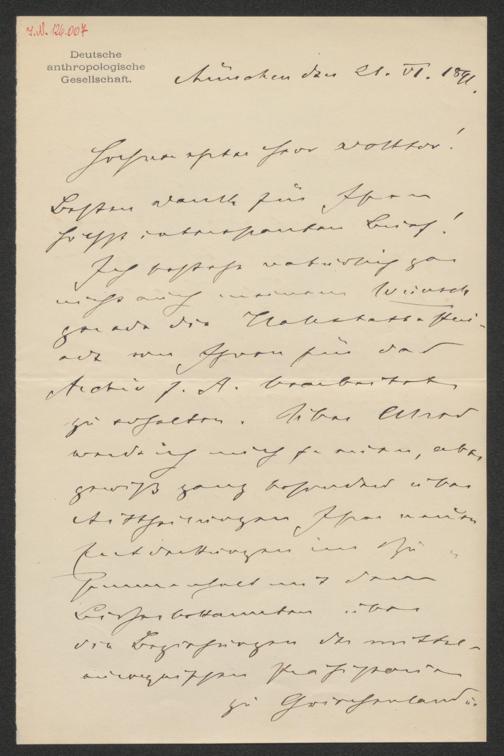 J.N. 126.007
Deutsche
anthropologische
Gesellschaft.
München den 21. VI. 1891.
Hochverehrter Herr Doktor!
Besten Dank für Ihren
höchst interessanten Brief!
Ich bestehe natürlich gar
nicht auf meinem Wunsch
gerade die
von Ihnen für das
Archiv f. A. bearbeitet
zu erhalten. Über Alles
werde ich mich freuen, aber
gewiß ganz besonders über
Mittheilungen Ihrer neuen
Entdeckungen im Zu-
sammenhalt mit dem
Bisherbekannten über
die Beziehungen der mittel-
europäischen Prähistorie
zu Griechenland u.